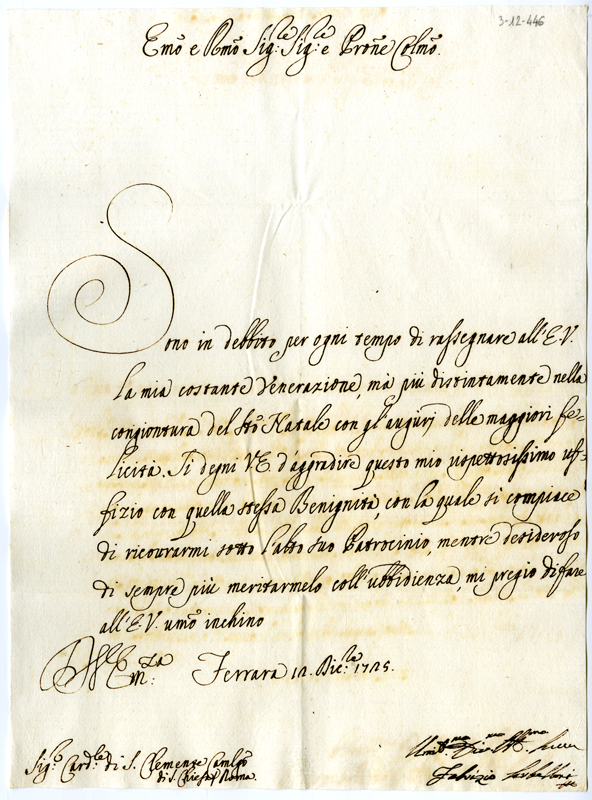 3-12-446
Emo e Rmo Sig:re Sig:re e Prone Colmo.
Sono in debbito per ogni tempo di rassegnare all'E.V.
la mia costante Venerazione, mà più distintamente nella
congiontura del Sto Natale con gl'augurj delle maggiori fe=
licità. Si degni V.E. d'aggradire questo mio rispettosissimo uf=
fizio con quella stessa Benignità, con la quale si compiace
di ricourarmi sotto l'alto suo Patrocinio, mentre desideroso
di sempre più meritarmelo coll'ubbidienza, mi pregio di fare
all'E.V. umo inchino
Ferrara 12. Dic:re 1725.
Sig:r Card:le di S. Clemente Camlgo
di S. Chiesa Roma.
Fabrizio Serbelloni